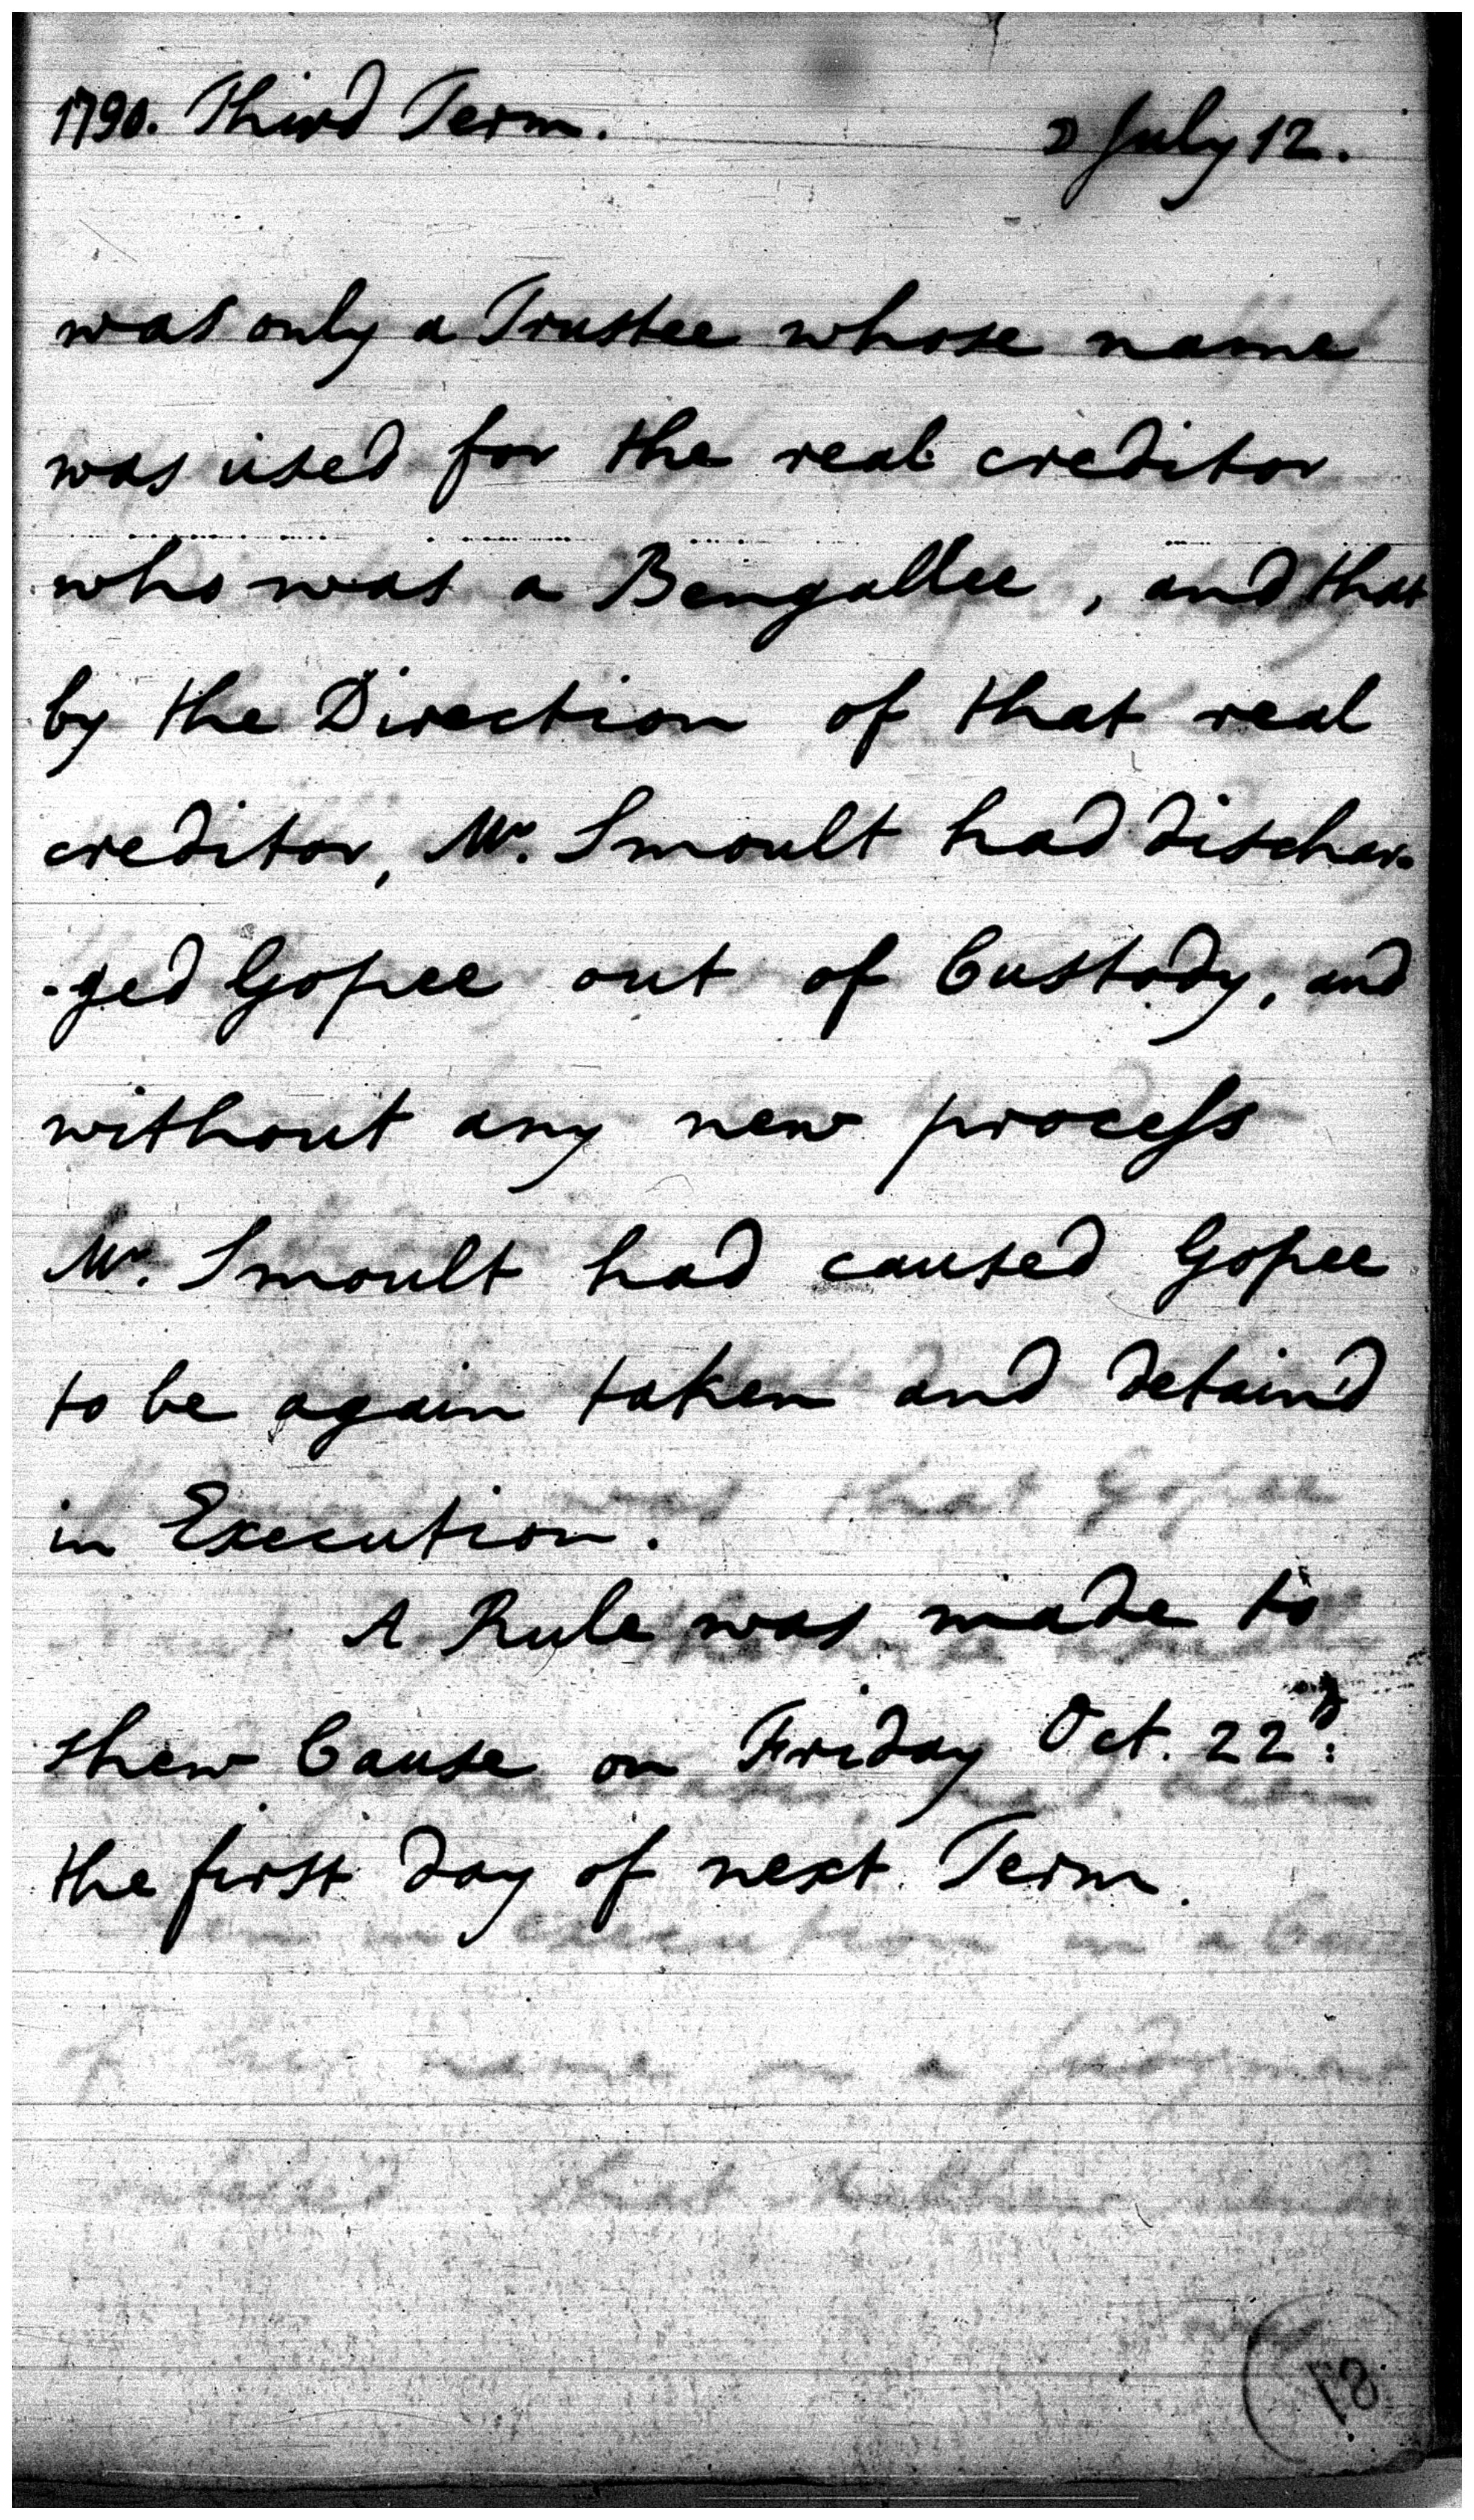 1790. Third Term. ☽ July 12.
was only a Trustee whose name
was used for the real creditor
who was a Bengallee, and that
by the Direction of that real
creditor, Mr. Smoult had dischar-
-ged Gopee out of Custody, and
without any new process
Mr. Smoult had caused Gopee
to be again taken and detain'd
in Execution.
A Rule was made to
shew Cause on Friday Oct. 22d:
the first day of next Term.